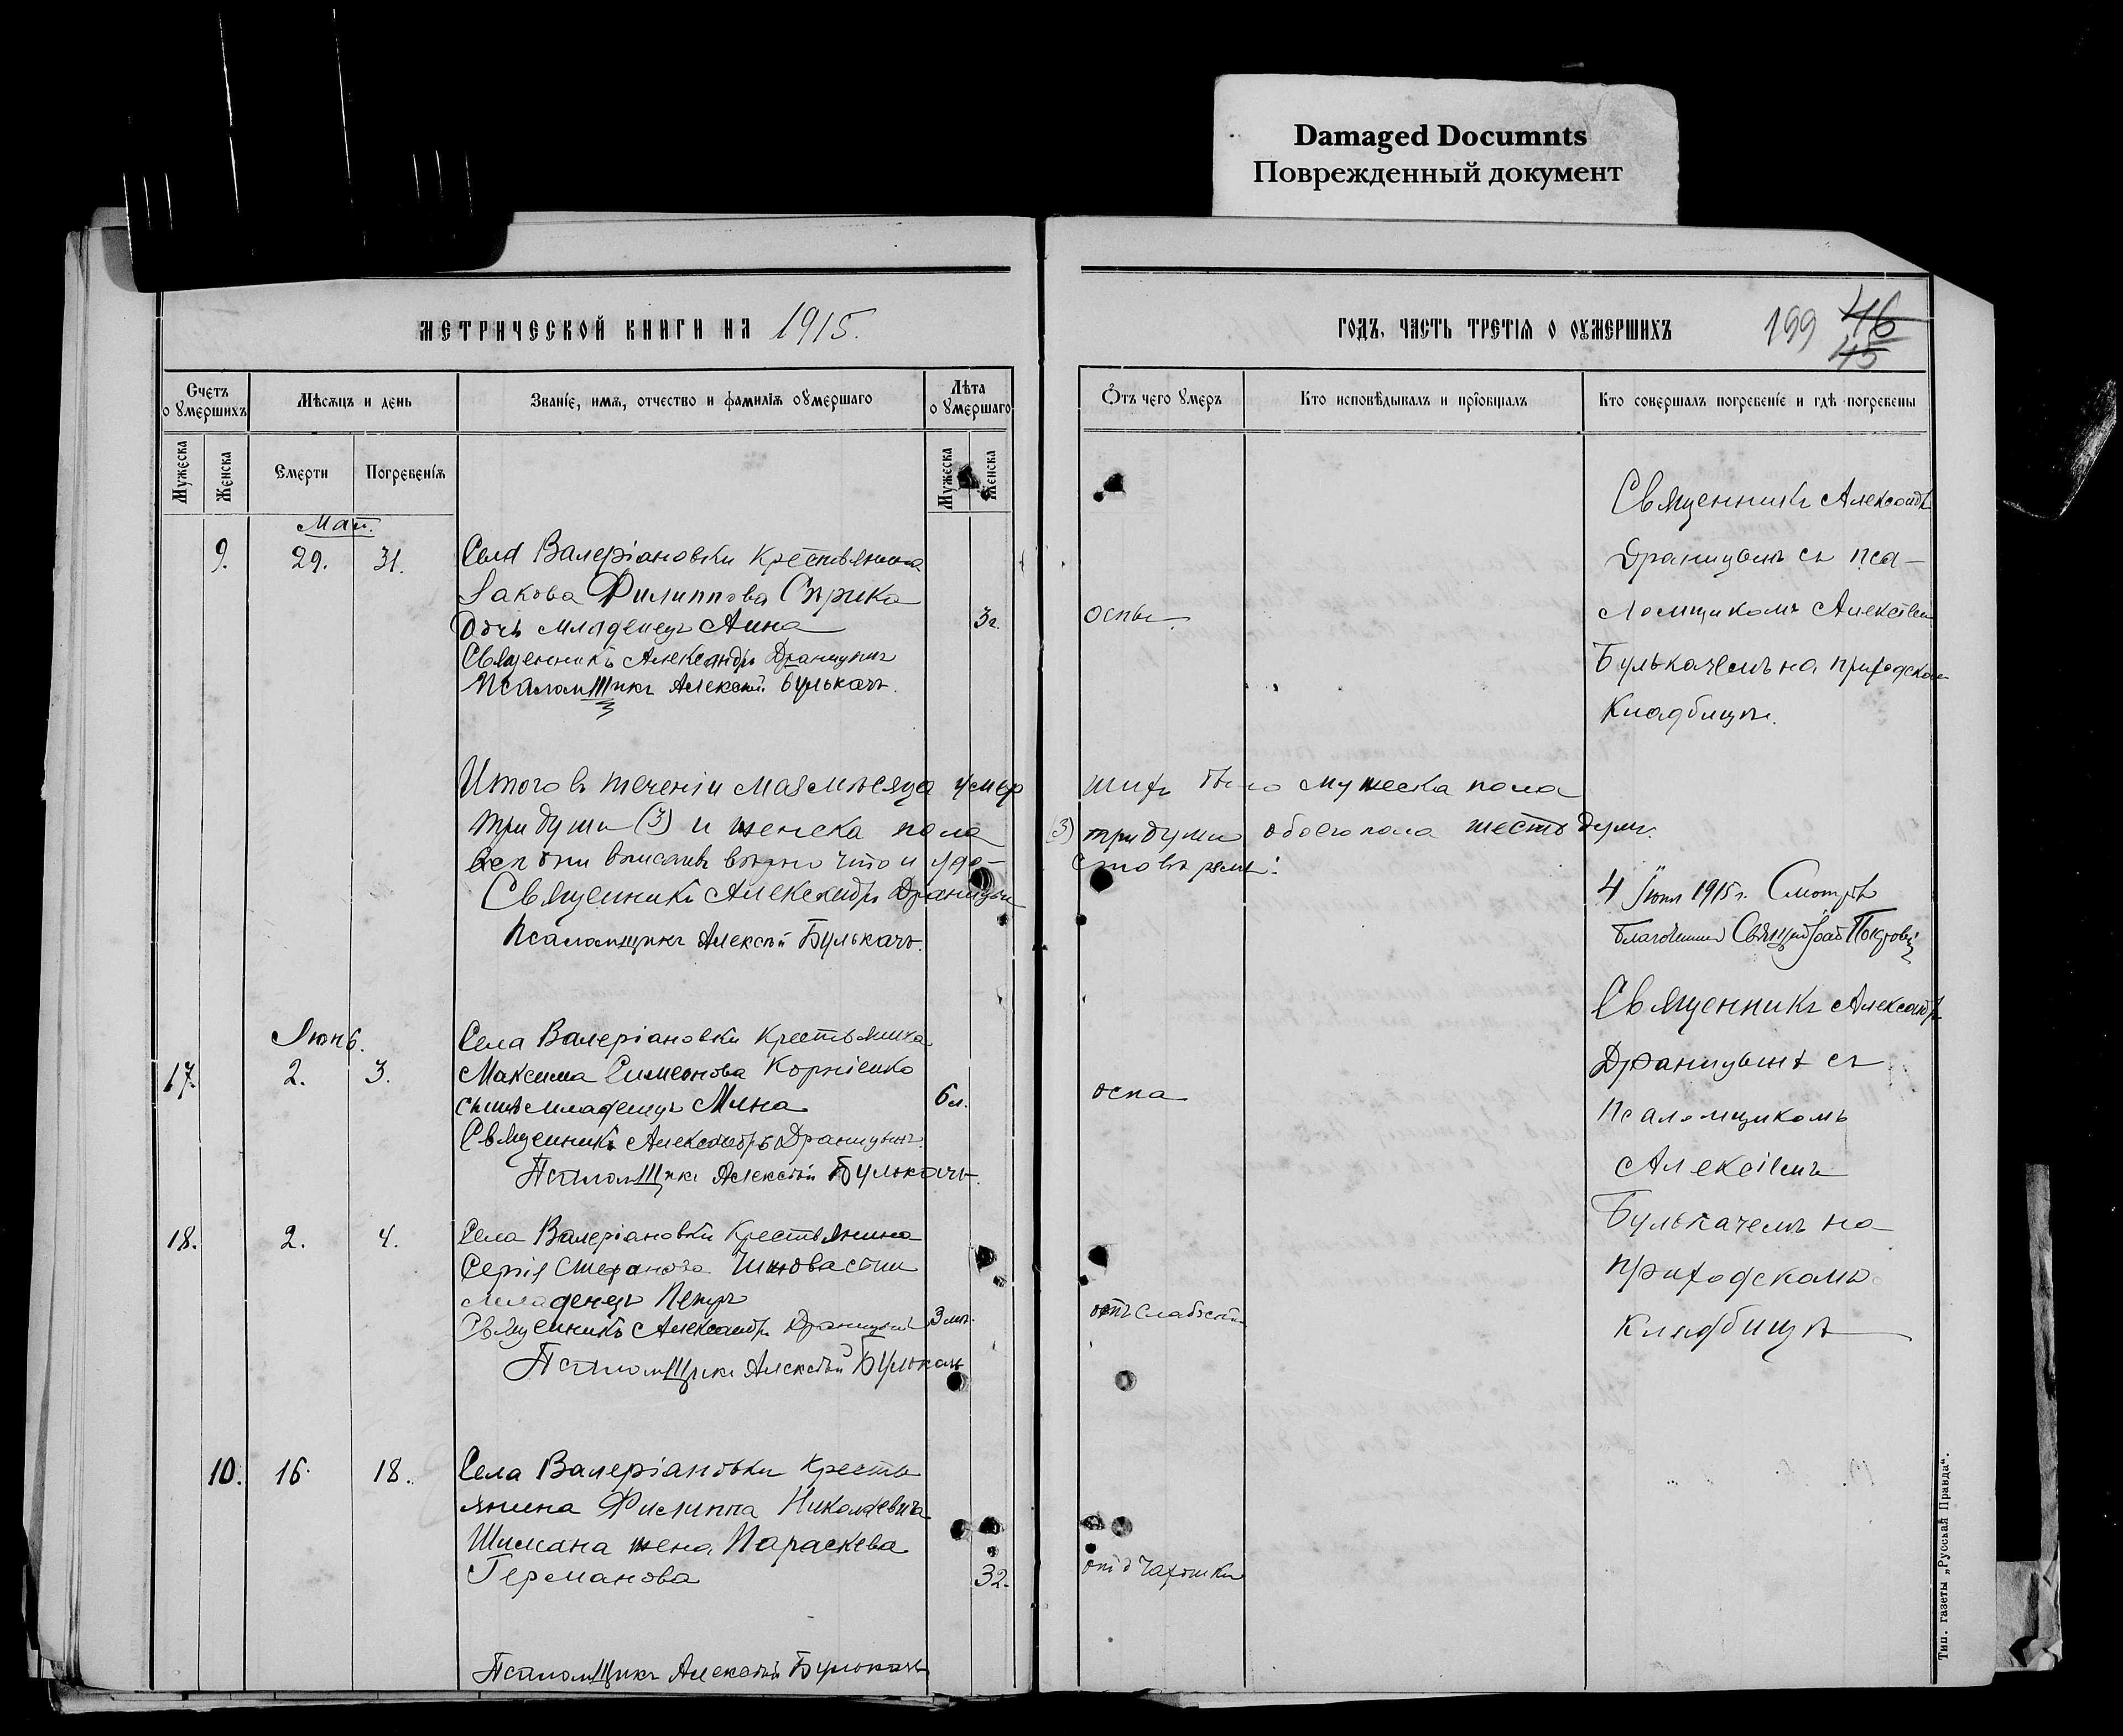 Damaged Documnts
Поврежденный документ
МЕТРИЧЕСКОЙ КНИГИ НА 1915.
Счетъ о умершихъ
Мѣсяцъ и день
Званіе, имя, отчество и фамилія оумершаго
Лѣта о умершаго
Мужеска
Женска
Смерти
Погребенія
Мужеска
Женска
Май.
9. 29. 31. Села Валеріановки крестьянина
Іакова Филиппова Сѣрика
дочь младенецъ Анна 3г.
Священникъ Александръ Драницынъ
Псаломщикъ Алексѣй Булькачъ.
Итого въ теченіи мая мѣсяца умер
три души (3) и женска пола
Священникъ Александръ Драницынъ
Псаломщикъ Алексѣй Булькачъ.
Іюнь.
17. 2. 3. Села Валеріановки крестьянина
Максима Симеонова Корніенко
сынъ младенецъ Мина 6л.
Священникъ Александръ Драницынъ
Псаломщикъ Алексѣй Булькачъ.
18. 2. 4. Села Валеріановки крестьянина
Сергія Стефанова
младенецъ Петръ 3 мѣ.
Священникъ Александръ Драницынъ
Псаломщикъ Алексѣй Булькачъ
10. 16. 18. Села Валеріановки кресть
янина Филиппа Николаевича
Шимана жена Параскева
Германова 32.
Псаломщикъ Алексѣй Булькачъ
ГОДЪ, ЧАСТЬ ТРЕТІЯ О ОУМЕРШИХЪ
199 46
45
Отъ чего умеръ
Кто исповѣдывалъ и пріобщалъ
Кто совершалъ погребеніе и гдѣ погребены
Священникъ Александръ
Драницынъ съ пса-
ломщикомъ Алексѣем
Булькачемъ на приходском
кладбищѣ.
оспы.
шихъ было мужеска пола
(3) три души обоего пола шесть душъ.
4 Іюня 1915 г. Смотрѣлъ
Священникъ Александръ
Драницынъ съ
псаломщикомъ
Алексіемъ
Булькачемъ на
приходскомъ
кладбищѣ
оспа
отъ слабости
отъ чахотки
Тип. газеты „Русская Правда“.